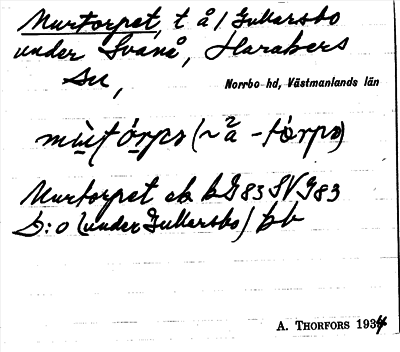 Murtorpet, t å / Gullarsbo
under Svanå, Harakers
Sn,
Norrbo hd, Västmanlands län
Murtorpet ek bG83 SVG83
D:o (under Gullarsbo) bb
A. Thorfors 1934